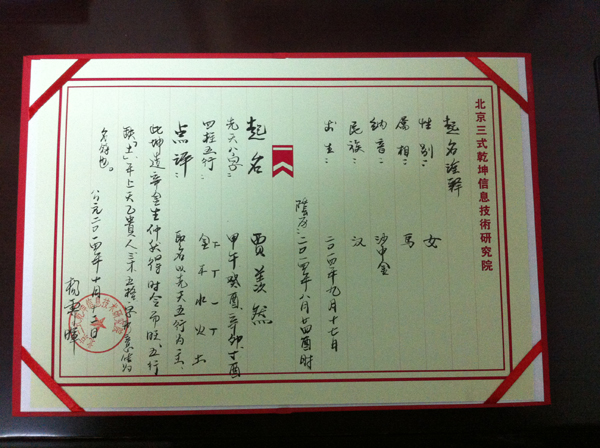 北京三式乾坤信息技術研究院
起名詮釋
性别： 女
属相： 马
纳音： 沙中金
民族： 汉
出生： 二〇一四年九月十七日
陰历：二〇一四年八月廿四酉时
起名 贾 然
先天八字： 甲午 癸酉 辛卯 丁酉
四柱五行： 金 木 水 火 土
点评： 取名以先天五行为主
此坤造辛金生仲秋得时令而旺，五行
缺「土」年上天乙貴人三才五格
公元二〇一四年十月 日